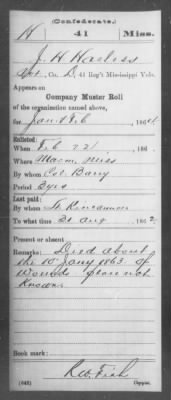 (Confederate.)
H 41 Miss.
J. H. Harless
Pvt, Co. D, 41 Reg't Mississippi Vols.
Appears on
Company Muster Roll
of the organization named above,
for Jan & Feb, 186
Enlisted:
When Feb 22, 186
Where Macon, Miss
By whom Col. Barry
Period 3 yrs
Last paid:
By whom
To what time 31 Aug, 1862
Present or absent
Remarks: Died about
the 10" Jany 1863 of
wounds place not
known
Book mark:
R.W. Fish
(642) Copyist.